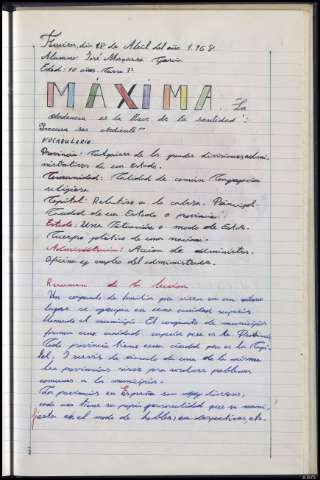 día 18 de Abril del año 1.968
Alumno: José García
Edad: 10 años.
MÁXIMA. La
obediencia es la llave de la santidad":
Procura ser obediente"
VOCABULARIO:
Provincia: Cualquiera de las grandes divisiones admi-
nistrativas de un estado.
Comunidad: Calidad de común Congregación
religiosa
Capital: Relativo a la cabeza. Principal
Ciudad de un Estado o provincia.
Estado: o modo de Estar.
Cuerpo político de una nación.
Administración: Acción de administrar.
Oficina y empleo del administrador.
Resumen de la lección
Un conjunto de familia que viven en un mismo
lugar se agrupan en una unidad superior
llamada el municipio. El conjunto de municipios
forman una unidad superior que es la Provincia
Toda provincia tiene una ciudad que es la Capi-
tal. de la misma
Las provincias sirven para resolver problemas
comunes a los municipios.
Las provincias en España son muy diversas,
cada una tiene su propia personalidad que se mani-
fiesta en el modo de hablar, en etc.